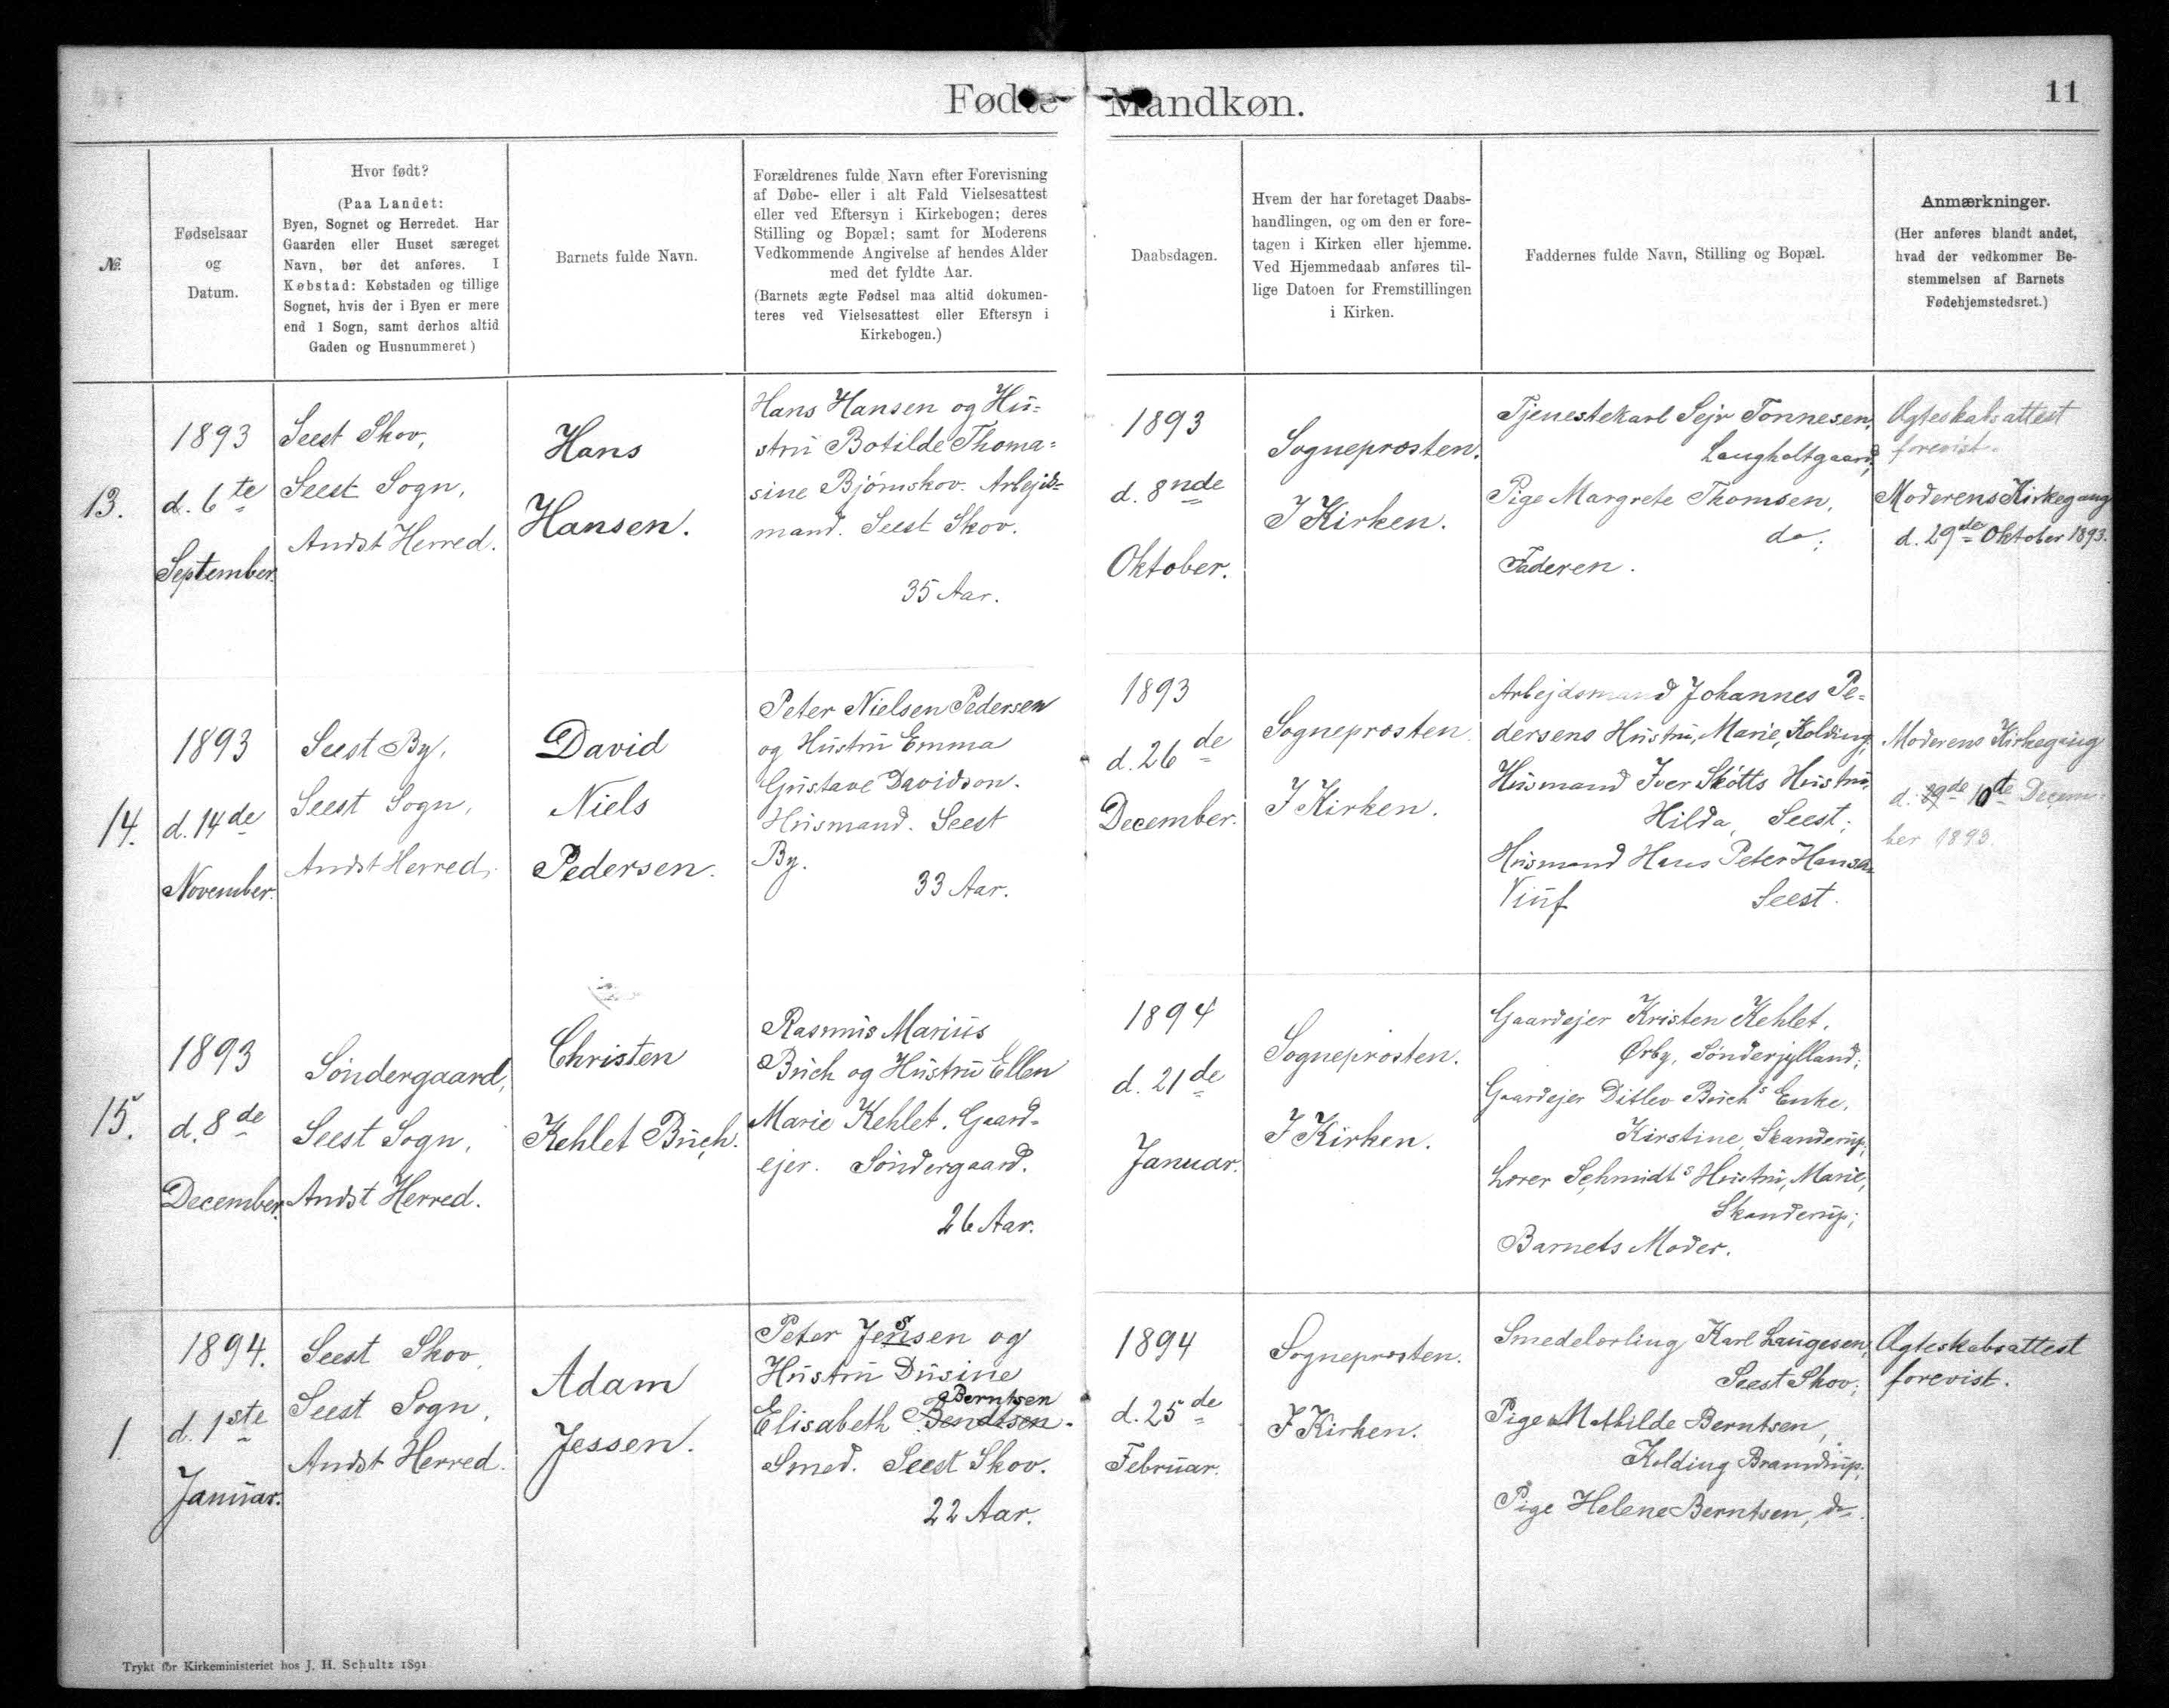 Fødte Mandkøn.
11
№
Fødselsaar
og
Datum.
Hvor født?
(Paa Landet:
Byen, Sognet og Herredet. Har
Gaarden eller Huset særeget
Navn, bør det anføres. I
Købstad: Købstaden og tillige
Sognet, hvis der i Byen er mere
end 1 Sogn, samt derhos altid
Gaden og Husnummeret)
Barnets fulde Navn.
Forældrenes fulde Navn efter Forevisning
af Døbe- eller i alt Fald Vielsesattest
eller ved Eftersyn i Kirkebogen; deres
Stilling og Bopæl; samt for Moderens
Vedkommende Angivelse af hendes Alder
med det fyldte Aar.
(Barnets ægte Fødsel maa altid dokumen-
teres ved Vielsesattest eller Eftersyn i
Kirkebogen.)
Daabsdagen.
Hvem der har foretaget Daabs-
handlingen, og om den er fore-
tagen i Kirken eller hjemme.
Ved Hjemmedaab anføres til-
lige Datoen for Fremstillingen
i Kirken.
Faddernes fulde Navn, Stilling og Bopæl.
Anmærkninger.
(Her anføres blandt andet,
hvad der vedkommer Be-
stemmelsen af Barnets
Fødehjemstedsret.)
13.
1893
d. 6te
September.
Seest Skov,
Seest Sogn,
Andst Herred.
Hans
Hansen.
Hans Hansen og Hu=
stru Botilde Thoma=
sine Bjørnskov. Arbejds=
mand. Seest Skov.
35 Aar.
1893
d. 8nde
Oktober.
Sognepræsten.
I Kirken.
Tjenestekarl Sejr Tonnesen,
Laugholtgaard,
Pige Margrete Thomsen,
do;
Faderen.
Ægteskabsattest
forevist.
Moderens Kirkegang
d. 29de Oktober 1893.
14.
1893
d. 14de
November.
Seest By,
Seest Sogn,
Andst Herred.
David
Niels
Pedersen.
Peter Nielsen Pedersen
og Hustru Emma
Gustave Davidson.
Husmand. Seest
By.
33 Aar.
1893
d. 26de
December.
Sognepræsten.
I Kirken.
Arbejdsmand Johannes Pe=
dersens Hustru, Marie, Kolding;
Husmand Iver Skøtts Hustru,
Hilda, Seest;
Husmand Hans Peter Hansen
Viuf Seest.
Moderens Kirkegang
d. 10de Decem=
ber 1893.
15.
1893
d. 8de
December.
Søndergaard,
Seest Sogn,
Andst Herred.
Christen
Kehlet Buch.
Rasmus Marius
Buch og Hustru Ellen
Marie Kehlet. Gaard=
ejer. Søndergaard.
26 Aar.
1894
d. 21de
Januar.
Sognepræsten.
I Kirken.
Gaardejer Kristen Kehlet,
Ørby, Sønderjylland;
Gaardejer Ditlev Buchs Enke,
Kirstine, Skanderup;
Lærer Schmidts Hustru, Marie,
Skanderup;
Barnets Moder.
1.
1894.
d. 1ste
Januar.
Seest Skov,
Seest Sogn,
Andst Herred.
Adam
Jessen.
Peter Jessen og
Hustru Dusine
Berntsen
Elisabeth Bendtsen.
Smed. Seest Skov.
22 Aar.
1894
d. 25de
Februar.
Sognepræsten.
I Kirken.
Smedelærling Karl Laugesen,
Seest Skov;
Pige Mathilde Berntsen,
Kolding Bramdrup;
Pige Helene Berntsen, do.
Ægteskabsattest
forevist.
Trykt for Kirkeministeriet hos J. H. Schultz 1891